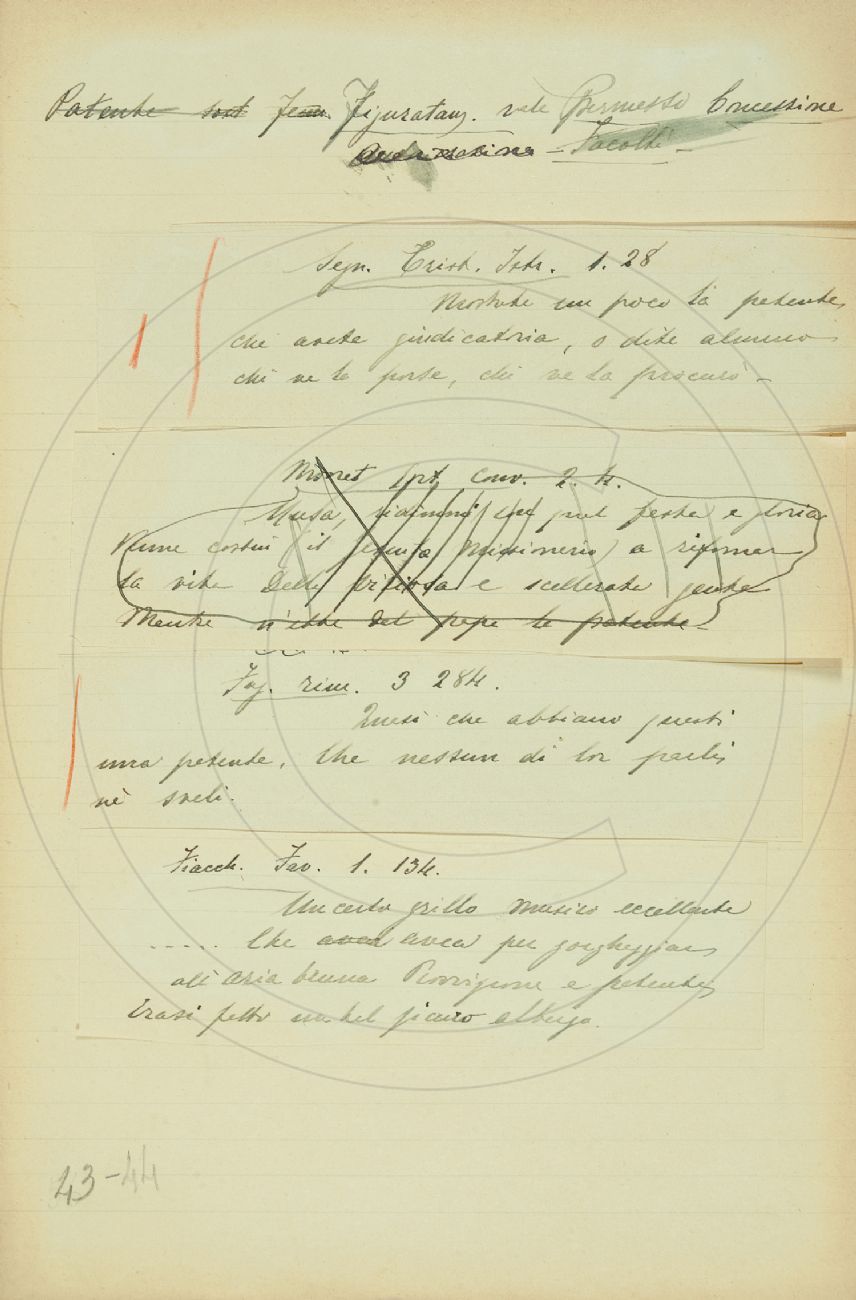 Patente sost. fem. Figuratam. vale Permesso Concessione
Facoltà -
Segn. Crist. Istr. 1. 28
Mostrate un poco la patente
che avete giudicatoria, o dite almeno
chi ve la porse, chi ve la procurò -
Monet. Cort. Conv. 2. 4.
Musa, ridimmi
e gloria
costui (il Missionerio) a riformar
la vita della viziosa e scellerata gente
Mentre n'ebbe dal papa la patente -
Fag. rim. 3 284.
Quasi che abbiano questi
una patente, Che nessun di lor parli,
nè sveli.
Fiacch. Fav. 1. 134.
Un certo grillo musico eccellente
..... Che avea avea per gorgheggiare
all'aria bruna Provvigione e patente
Erasi fatto un bel sicuro albergo.
43-44